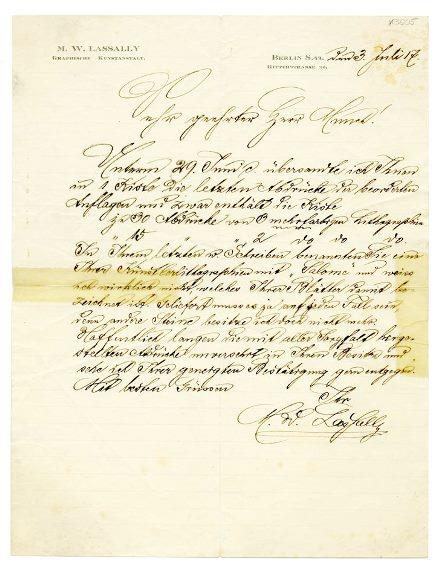 M. W. LASSALLY
GRAPHISCHE KUNSTANSTALT.
BERLIN S.42. den 3. Juli 17.
RITTERSTRASSE
Sehr geehrter Herr Munch!
Unterm 29. Juni übersandte ich Ihnen
in 1 Kiste die letzten Abdrücke der beorderten
Auflagen und zwar enthält die Kiste
zu 30 Abdrücke von 6 mehrfarbigen Lithographien
" 15 " " 2 do do do.
In Ihrem letzten w. Schreiben benannten Sie eine
Ihrer Künstlerlithographien mit „Salome" und weiss
ich wirklich nicht welches Ihrer Blätter damit be-
zeichnet ist. Geliefert muss es ja auf jeden Fall sein,
denn andre Steine besitze ich doch nicht mehr.
Hoffentlich langen die mit aller Sorgfalt herge-
stellten Abdrücke unversehrt zu Ihrem Besitz und
sehe ich Ihrer geneigten Bestätigung gern entgegen.
Mit besten Grüssen
Ihr
M. W. Lassally